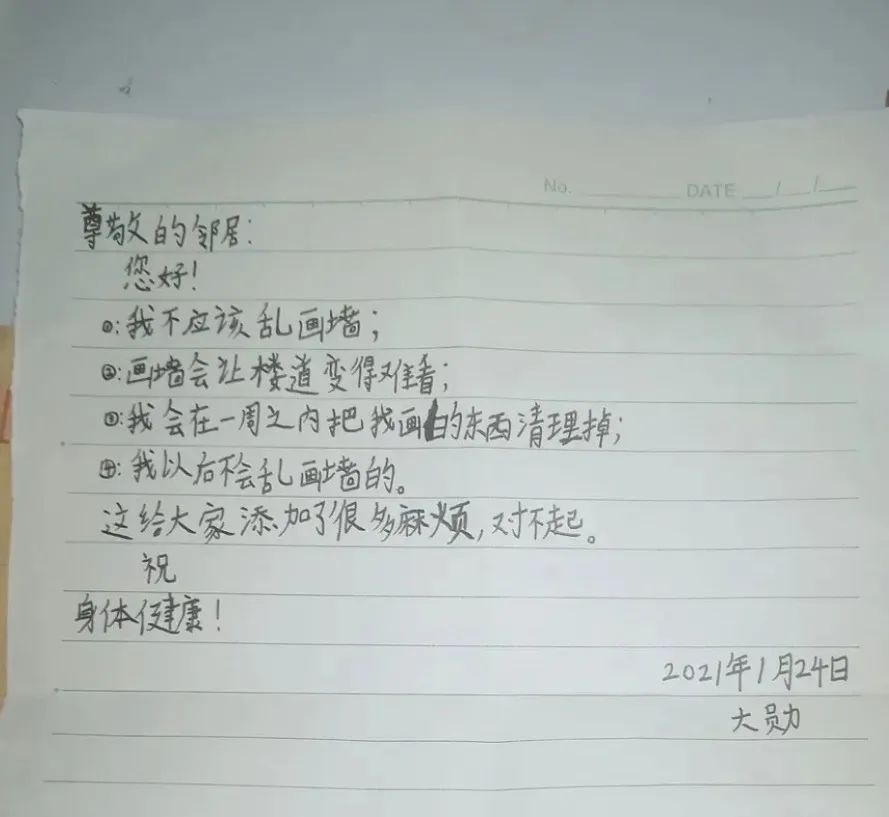 No. DATE / /
尊敬的邻居:
您好!
①:我不应该乱画墙;
②:画墙会让楼道变得难看;
③:我会在一周之内把我画的东西清理掉;
④:我以后不会乱画墙的。
这给大家添加了很多麻烦,对不起。
祝
身体健康!
2021年1月24日
大勋